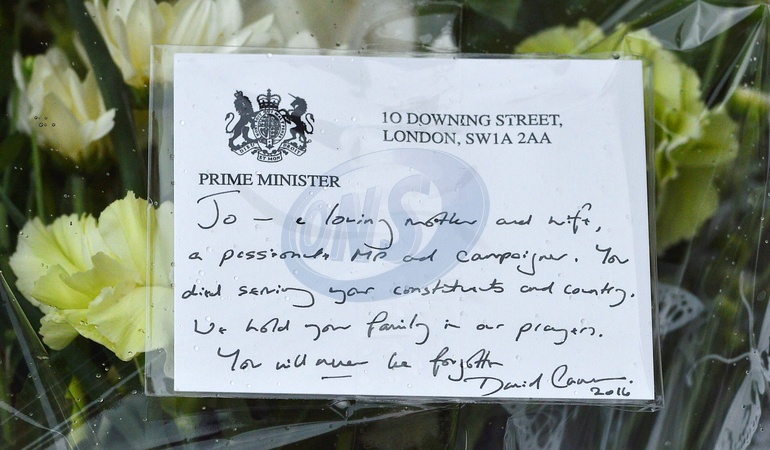 10 DOWNING STREET,
LONDON, SW1A 2AA
PRIME MINISTER
Jo – a loving mother and wife,
a passionate MP and campaigner. You
died serving your constituents and country.
We hold your family in our prayers.
You will never be forgotten
David Cameron.
2016
ONS